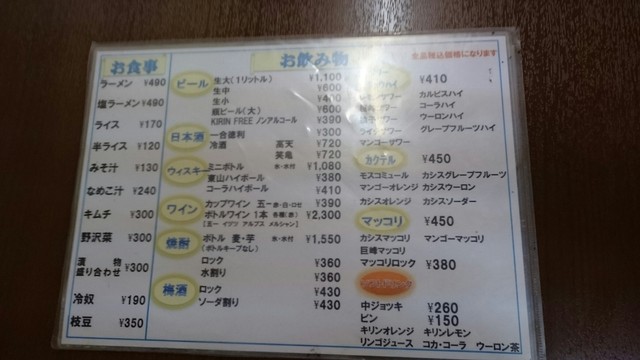 お食事
ラーメン ¥490
塩ラーメン ¥490
ライス ¥170
半ライス ¥120
みそ汁 ¥130
なめこ汁 ¥240
キムチ ¥300
野沢菜 ¥300
漬物
盛り合わせ ¥300
冷奴 ¥190
枝豆 ¥350
お飲み物
全品税込価格になります
ビール
生大(1リットル) ¥1,100
生中 ¥600
生小 ¥400
瓶ビール(大) ¥600
KIRIN FREE ノンアルコール ¥390
日本酒
一合徳利 ¥300
冷酒 高天 ¥720
笑亀 ¥720
ウィスキー
ミニボトル 氷・水付 ¥1,080
東山ハイボール ¥380
コーラハイボール ¥410
ワイン
カップワイン 五一 赤・白・ロゼ ¥390
ボトルワイン 1本 各種(赤) ¥2,300
[五一 イヅツ アルプス メルシャン]
焼酎
ボトル 麦・芋 氷・水付 ¥1,550
(ボトルキープなし)
ロック ¥360
水割り ¥360
梅酒
ロック ¥430
ソーダ割り ¥430
¥410
カルピスハイ
コーラハイ
ウーロンハイ
グレープフルーツハイ
マンゴーサワー
カクテル ¥450
モスコミュール カシスグレープフルーツ
マンゴーオレンジ カシスウーロン
カシスオレンジ カシスソーダー
マッコリ ¥450
カシスマッコリ マンゴーマッコリ
巨峰マッコリ
マッコリロック ¥380
ソフトドリンク
中ジョッキ ¥260
ビン ¥150
キリンオレンジ キリンレモン
リンゴジュース コカ・コーラ ウーロン茶